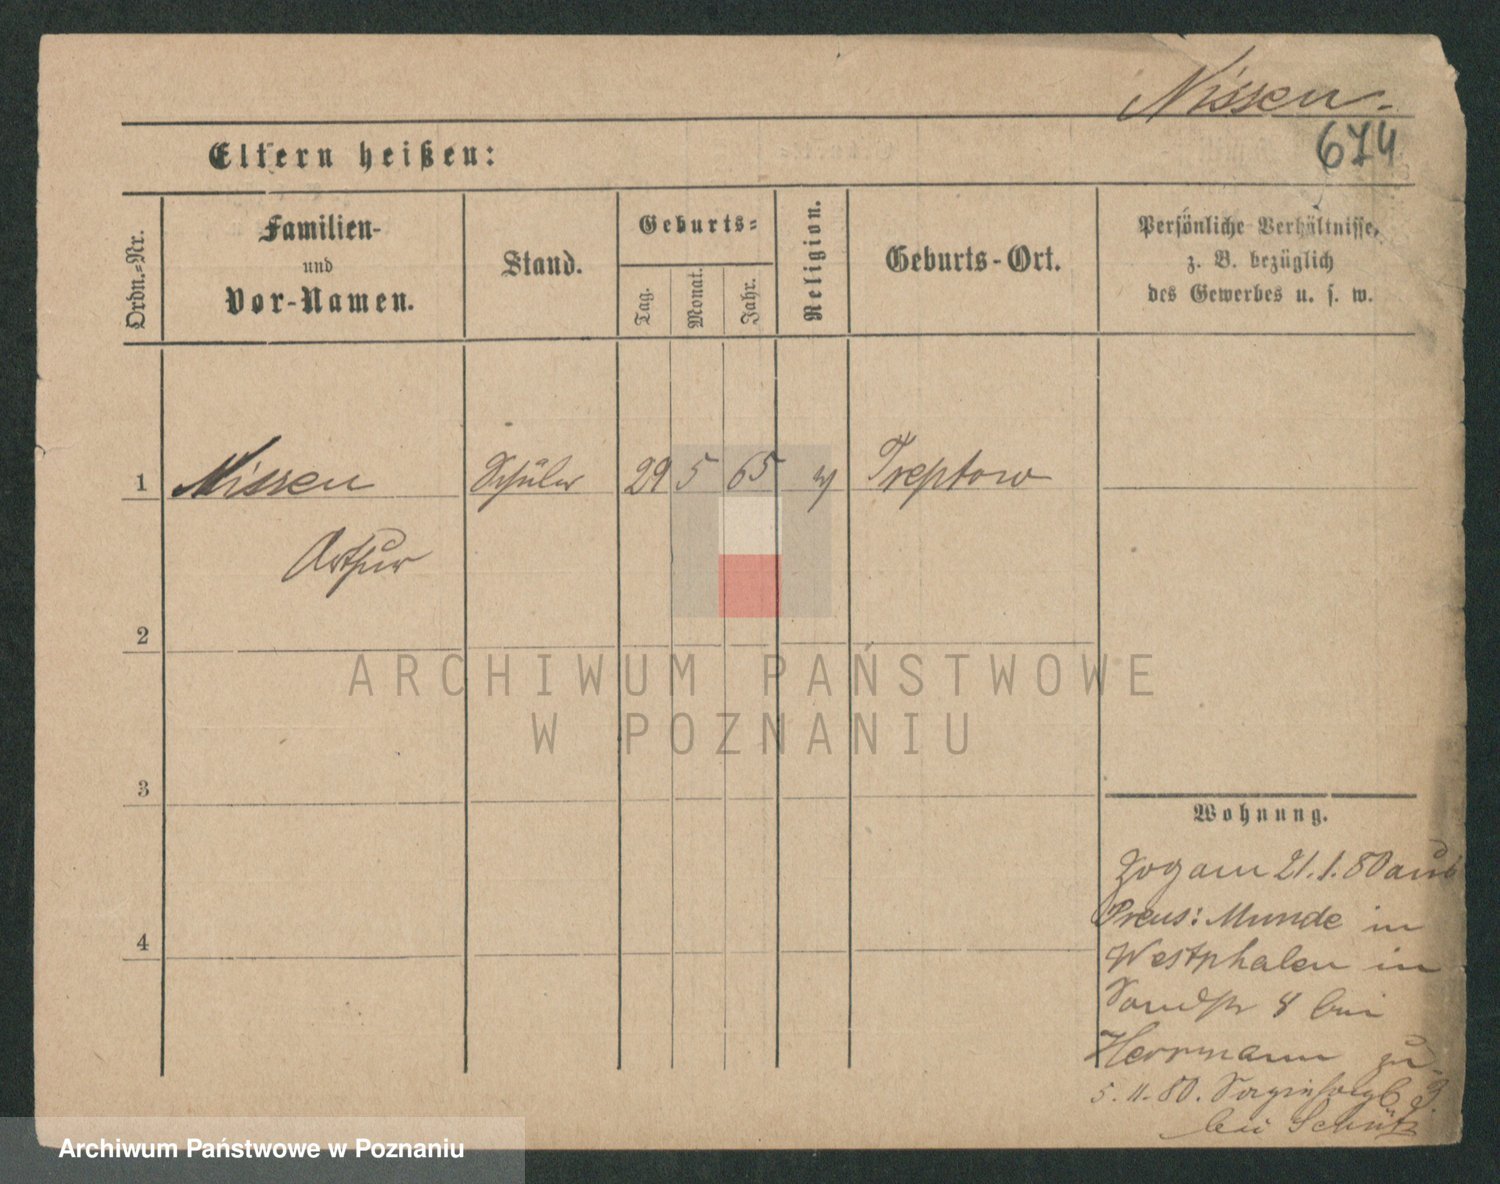 Nissen.
674
Eltern heißen:
Ordn.=Nr.
Familien-
und
Vor-Namen.
Stand.
Geburts=
Tag.
Monat.
Jahr.
Religion.
Geburts-Ort.
Persönliche Verhältnisse,
z. B. bezüglich
des Gewerbes u. s. w.
1 Nissen Schüler 29 5 65 Treptow
Arthur
2
3
4
Wohnung.
Zog am 21.1.80 aus
Preus: Munde in
Westphalen in
8 bei
Herrmann zu.
5. 11. 80.
bei Schütz
ARCHIWUM PAŃSTWOWE
W POZNANIU
Archiwum Państwowe w Poznaniu